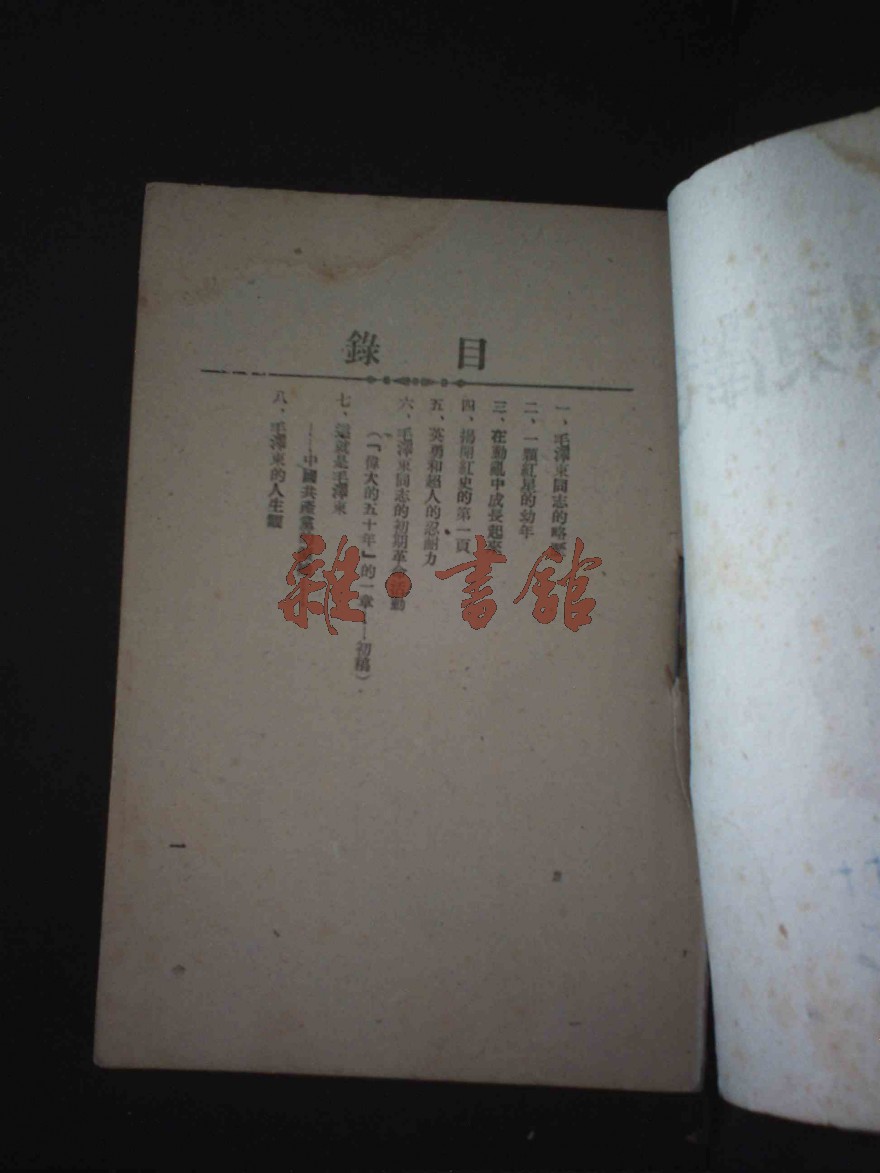 目錄
一、毛澤東同志的略
二、一顆紅星的幼年
三、在動亂中成長起來
四、揭開紅史的第一頁
五、英勇和超人的忍耐力
六、毛澤東同志的初期革命活動
（「偉大的五十年」的一章——初稿）
七、這就是毛澤東
——中國共產黨
八、毛澤東的人生觀
一
雜·書館